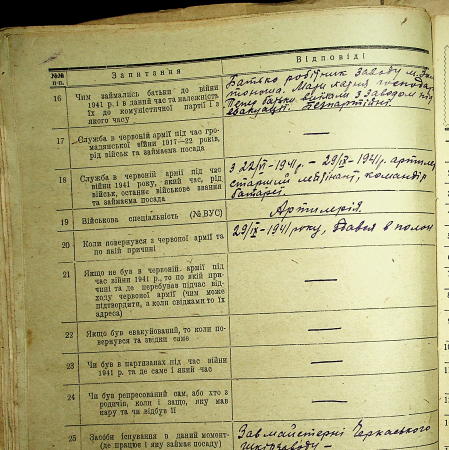 №№ п-п. Запитання Відповіді
16 Чим займались батьки до війни
1941 р. і в даний час та належність
їх до комуністичної партії і з
якого часу
Батько робітник заводу м.
Мати хатня господар.
батьки з заводом під
евакуації. Безпартійні.
17 Служба в червоній армії під час гро-
мадянської війни 1917—22 років,
рід військ та займаєма посада
—
18 Служба в червоній армії під час
війни 1941 року, який час, рід
військ, останнє військове звання
та займаєма посада
з 22/VI-1941р. – 29/IX-1941р. артилер.
старший лейтінант, командір
батареї.
19 Військова спеціяльність (№ ВУС)
Артилерія.
20 Коли повернувся з червоної армії та
по якій причині
29/IX-1941 року, здався в полон
21 Якщо не був в червоній армії під
час війни 1941 р., то по якій при-
чині та де перебував підчас від-
ходу червоної армії (чим може
підтвердити, а коли свідками то їх
адреса)
—
22 Якщо був евакуйований, то коли по-
вернувся та звідки саме
—
23 Чи був в партизанах під час війни
1941 р. та де саме і який час
—
24 Чи був репресований сам, або хто з
родичів, коли і защо, яку мав
кару та чи відбув її
—
25 Засоби існування в даний момент
(де працює і яку займає посаду)
Зав майстерні Черкаського